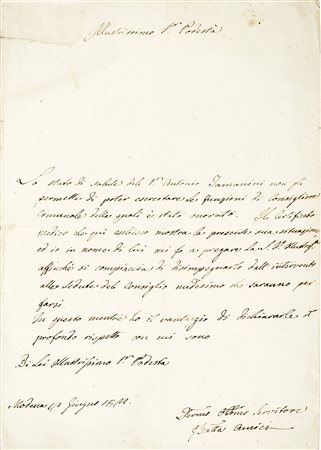 Illustrissimo Sr. Podestà
Lo stato di salute del Sr. Antonio Tamanini non gli
permette di poter esercitare le funzioni di Consigliere
Comunale delle quali è stato onorato. Il Certificato
medico che qui unisco mostra la presente sua situazione
ed io in nome di lui mi fo a pregare la S. V. Illustrma
affinchè si compiaccia di disimpegnarlo dall'intervento
alle sedute del Consiglio medesimo che saranno per
farsi.
In questo mentre ho il vantaggio di dichiararle il
profondo rispetto con cui sono
Di Lei Illustrissimo Sr. Podestà
Modena Giugno
Servitore